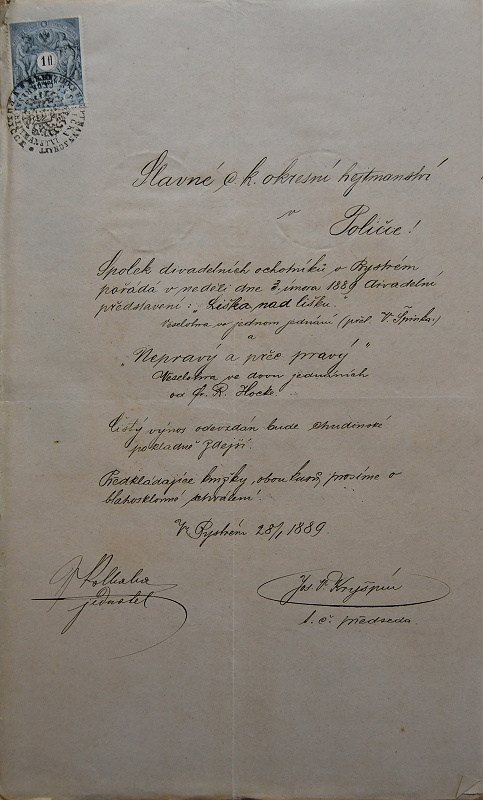 10
Slavné c. k. okresní hejtmanství
v
Poličce!
Spolek divadelních ochotníků v Bystrém
pořádá v neděli dne 3. února 1889 divadelní
představení: „Liška nad lišku."
Veselohra v jednom jednání (přel. V. Špinka.)
a
„Nepravý a přece pravý"
Veselohra ve dvou jednáních
od Fr. R.
Čistý výnos odevzdán bude chudinské
pokladně zdejší.
Předkládajíce knížky obou kusů, prosíme o
blahosklonné schválení!
V Bystrém 28/1 1889.
jednatel
Jos. V. Kryšpín
t. č. předseda.